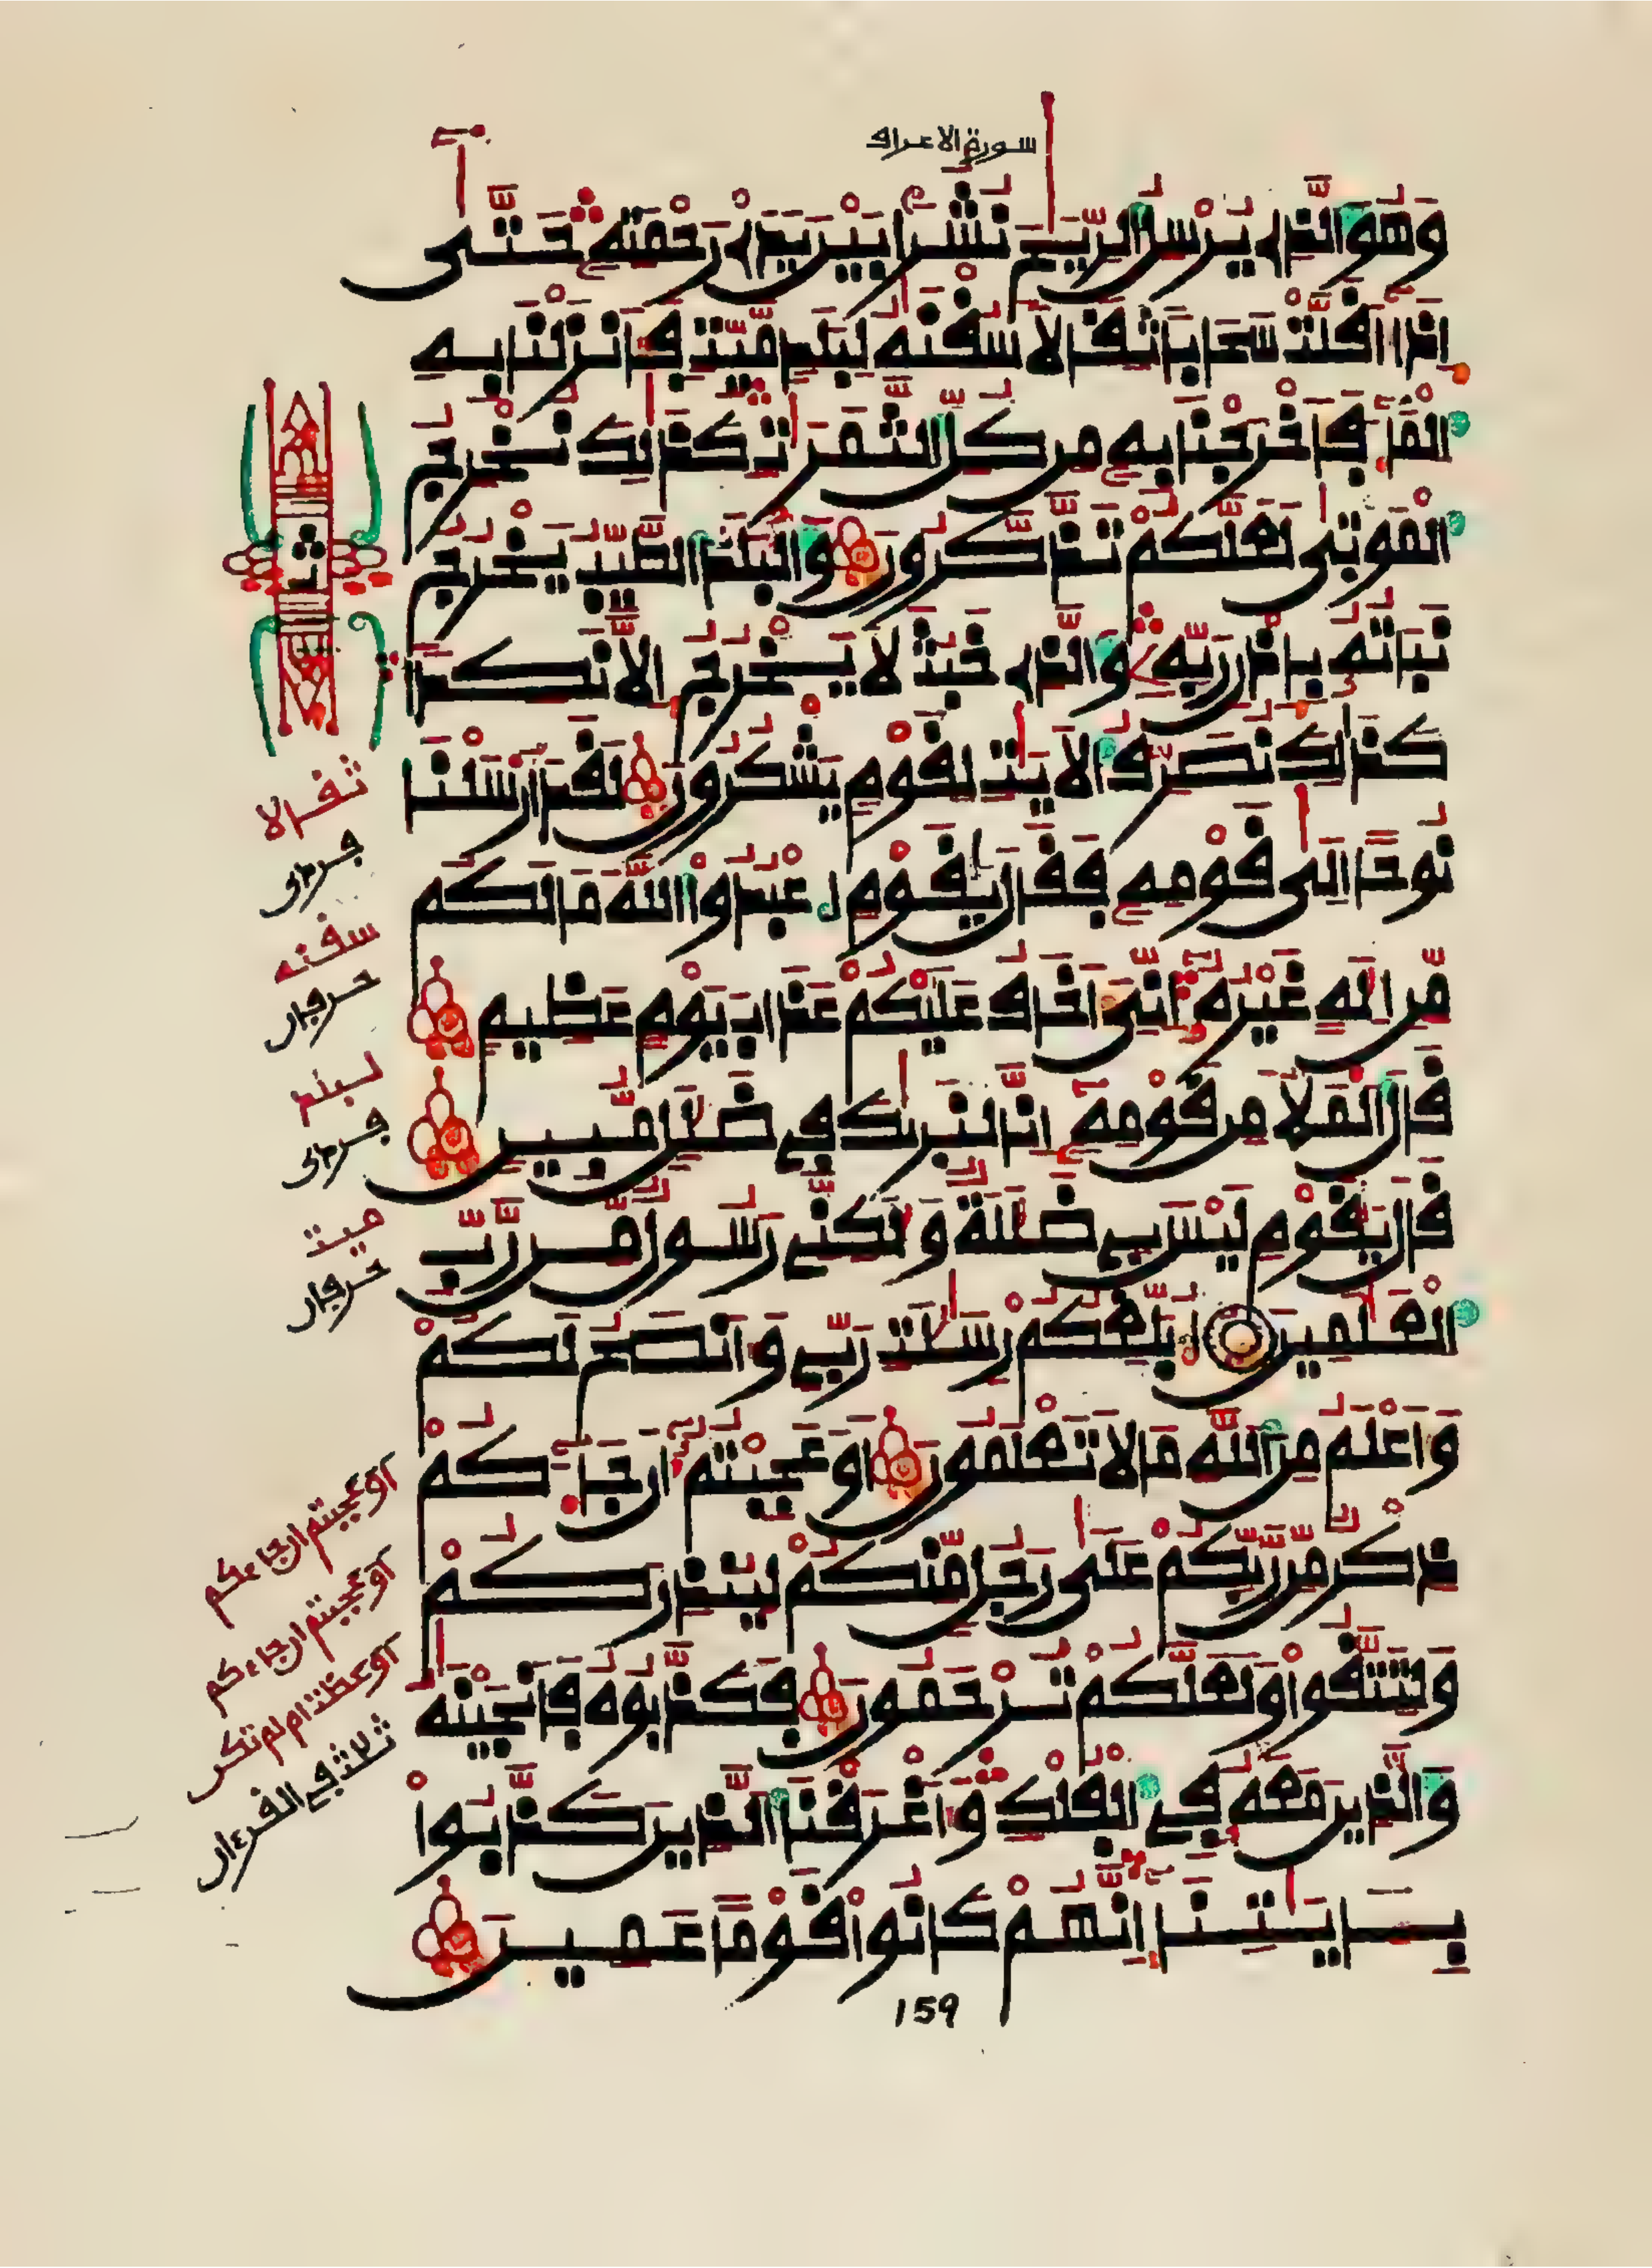 سورة الاعراف
وَهُوَ الَّذِي يُرْسِلُ الرِّيَٰحَ نُشُرًا بَيْنَ يَدَيْ رَحْمَتِهِ حَتَّىٰ
إِذَا أَقَلَّتْ سَحَابًا ثِقَالًا سُقْنَٰهُ لِبَلَدٍ مَّيِّتٍ فَأَنزَلْنَا بِهِ
الْمَاءَ فَأَخْرَجْنَا بِهِ مِن كُلِّ الثَّمَرَٰتِ كَذَٰلِكَ نُخْرِجُ
الْمَوْتَىٰ لَعَلَّكُمْ تَذَّكَّرُونَ وَالْبَلَدُ الطَّيِّبُ يَخْرُجُ
نَبَاتُهُ بِإِذْنِ رَبِّهِ وَالَّذِي خَبُثَ لَا يَخْرُجُ إِلَّا نَكِدًا
كَذَٰلِكَ نُصَرِّفُ الْأَيَٰتِ لِقَوْمٍ يَشْكُرُونَ لَقَدْ أَرْسَلْنَا
نُوحًا إِلَىٰ قَوْمِهِ فَقَالَ يَٰقَوْمِ اعْبُدُوا اللَّهَ مَا لَكُم
مِّنْ إِلَٰهٍ غَيْرُهُ إِنِّيَ أَخَافُ عَلَيْكُمْ عَذَابَ يَوْمٍ عَظِيمٍ
قَالَ الْمَلَأُ مِن قَوْمِهِ إِنَّا لَنَرَىٰكَ فِي ضَلَٰلٍ مُّبِينٍ
قَالَ يَٰقَوْمِ لَيْسَ بِي ضَلَٰلَةٌ وَلَٰكِنِّي رَسُولٌ مِّن رَّبِّ
الْعَٰلَمِينَ أُبَلِّغُكُمْ رِسَٰلَٰتِ رَبِّي وَأَنصَحُ لَكُمْ
وَأَعْلَمُ مِنَ اللَّهِ مَا لَا تَعْلَمُونَ أَوَعَجِبْتُمُ أَن جَاءَكُمْ
ذِكْرٌ مِّن رَّبِّكُمْ عَلَىٰ رَجُلٍ مِّنكُمْ لِيُنذِرَكُمْ
وَلِتَتَّقُوا وَلَعَلَّكُمْ تُرْحَمُونَ فَكَذَّبُوهُ فَأَنجَيْنَٰهُ
وَالَّذِينَ مَعَهُ فِي الْفُلْكِ وَأَغْرَقْنَا الَّذِينَ كَذَّبُوا
بِـَٔايَٰتِنَا إِنَّهُمْ كَانُوا قَوْمًا عَمِينَ
159
ثمن
ثقالا
سقنه
حرفان
ميت
حرفان
اوعجبتم ان جاءكم
اوعجبتم ان جاءكم
ثلاث في القرءان